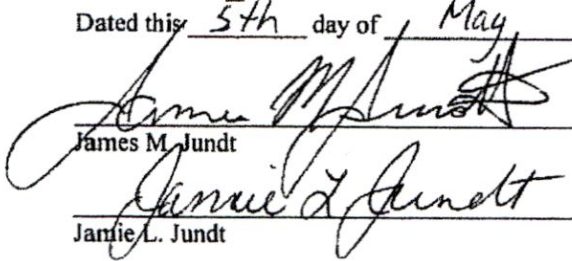 Dated this 5th day of May
James M Jundt
James M. Jundt
Jamie L Jundt
Jamie L. Jundt